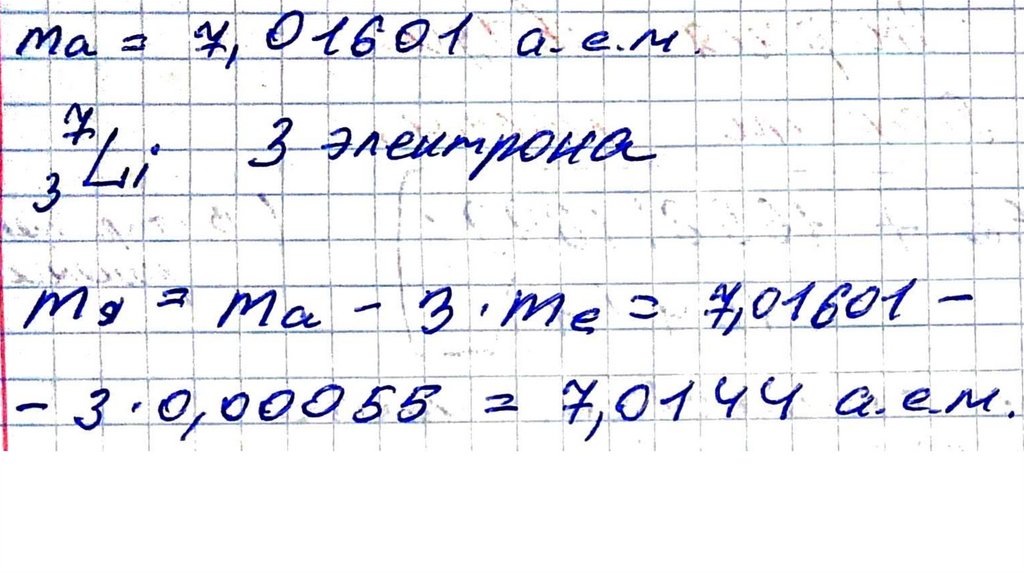 ma = 7,01601 а.е.м.
⁷₃Li 3 электрона
mя = ma - 3·me = 7,01601 -
- 3·0,00055 = 7,0144 а.е.м.